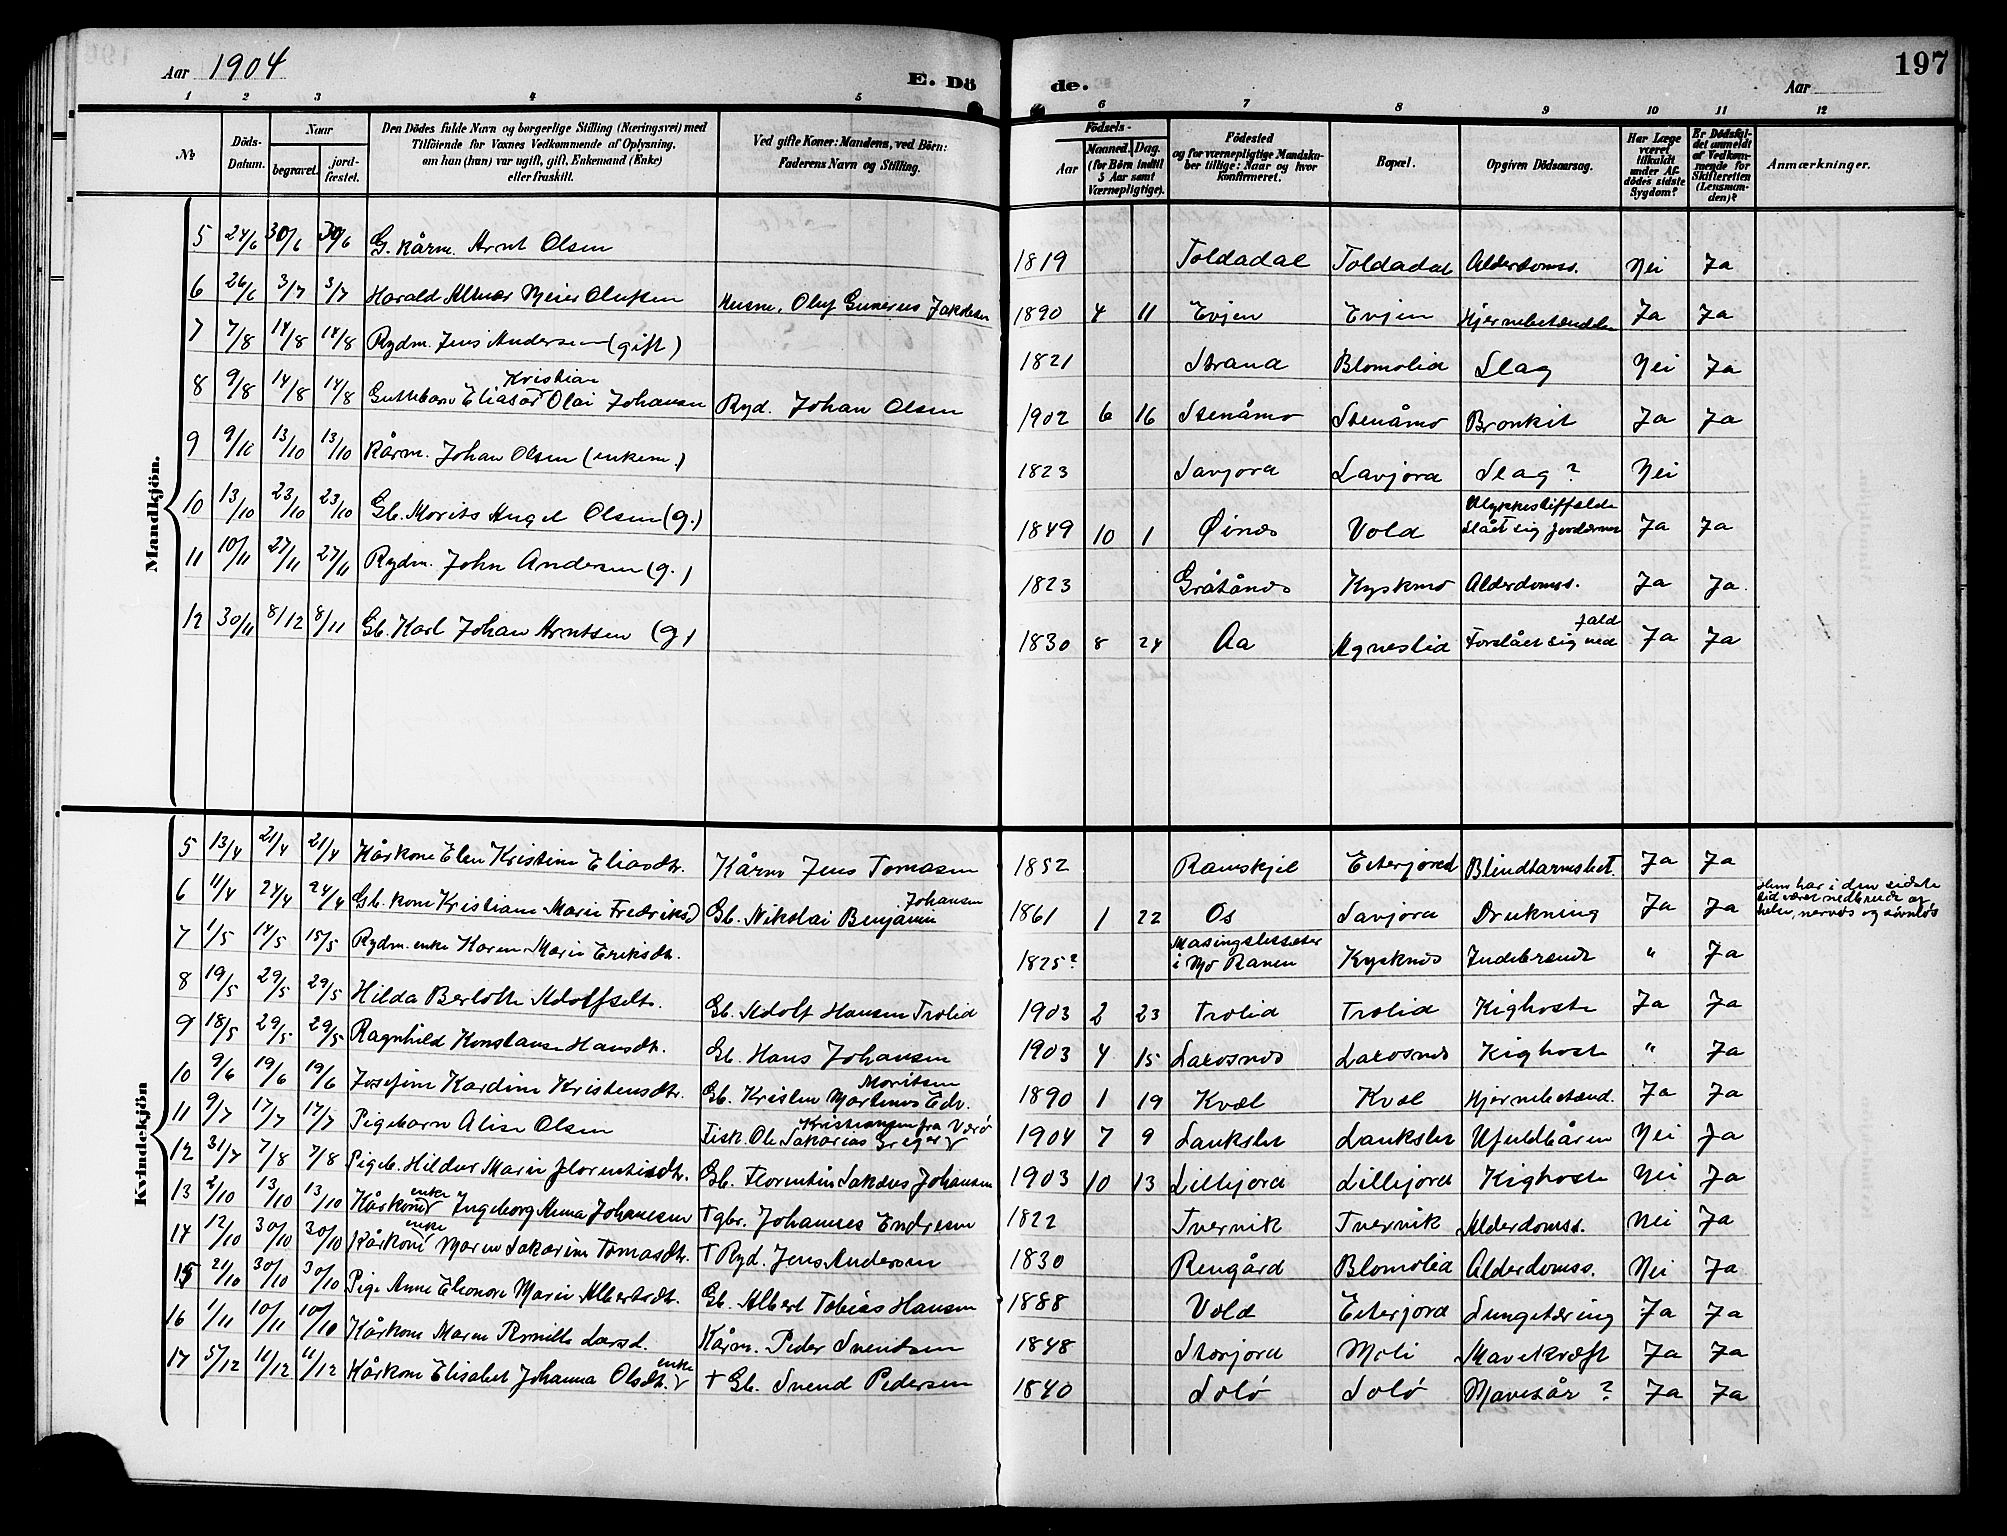 Aar 1904 E. Dö de. Aar 197
1 2 3 4 5 6 7 8 9 10 11 12
№ Döds-Datum. Naar begravet. jord-fæstet. Den Dödes fulde Navn og borgerlige Stilling (Næringsvei) med Tilföiende for Voxnes Vedkommende af Oplysning, om han (hun) var ugift, gift, Enkemand (Enke) eller fraskilt. Ved gifte Koner: Mandens, ved Börn: Faderens Navn og Stilling. Födsels- Aar Maaned. Dag. (for Börn indtil 5 Aar samt Værnepligtige). Födested og for værnepligtige Mandskaber tillige: Naar og hvor konfirmeret. Bopæl. Opgiven Dödsaarsag. Har Læge været tilkaldt under Afdödes sidste Sygdom? Er Dödsfaldet anmeldt af Vedkommende for Skifteretten (Lensmanden)? Anmærkninger.
Mandkjön.
5 24/6 30/6 30/6 G. kårm. Arnt Olsen 1819 Toldadal Toldadal Alderdomss. Nei Ja
6 26/6 3/7 3/7 Harald Meier Olufsen Husm. Oluf Gunerius Jakobsen 1890 4 11 Evjen Evjen Hjernebetændelse Ja Ja
7 7/8 14/8 14/8 Rydm. Jens Andersen (gift) 1821 Strand Blomolid Slag Nei Ja
8 9/8 14/8 14/8 Guttebarn Eliasar Kristian Olai Johansen Ryd. Johan Olsen 1902 6 16 Stenåmo Stenåmo Bronkit Ja Ja
9 9/10 13/10 13/10 Kårm. Johan Olsen (enkem.) 1823 Savjord Savjord Slag? Nei
10 13/10 23/10 23/10 Gb. Morits Angel Olsen (g.) 1849 10 1 Øinæs Vold Ulykkestilfælde slået sig Ja Ja
11 10/11 27/11 27/11 Rydm. John Andersen (g.) 1823 Gråtånæs Kyskmo Alderdomss. Ja Ja
12 30/11 8/12 8/11 Gb. Karl Johan Arntsen (g.) 1830 8 24 Aa Agneslid Forslået sig ned fald Ja Ja
Kvindekjön
5 13/4 21/4 21/4 Kårkone Elen Kristine Eliasdtr. Kårm Jens Tomasen 1852 Ramskjel Eiterjord Blindtarmsbet. Ja Ja
6 11/4 24/4 24/4 Gb. kone Kristiane Marie Fredriksd Gb. Nikolai Benjamin Johansen 1861 1 22 Os Savjord Drukning Ja Ja Hun har i den sidste tid været nedbrudt af helse, nervøs og søvnløs
7 1/5 14/5 15/5 Rydm. enke Karen Marie Eriksdtr. 1825? i Mo Ranen Kysknes " Ja
8 19/5 29/5 29/5 Hilda Berlotte Adolfsdtr. Gb. Adolf Hansen Trolid 1903 2 23 Trolid Trolid Kighoste Ja Ja
9 18/5 29/5 29/5 Ragnhild Konstanse Hansdtr. Gb. Hans Johansen 1903 4 15 Laxosnes Laxosnes Kighoste " Ja
10 9/6 19/6 19/6 Josefine Kardine Kristensdtr. Gb. Kristen Martinus Edv. Moritsen 1890 1 19 Kvæl Kvæl Hjernebetænd. Ja Ja
11 9/7 17/7 17/7 Pigebarn Alise Olsen Fisk. Ole Sakarias Greger Kristiansen fra Værø 1904 7 9 Lankslet Lankslet Ufuldbåren Nei Ja
12 31/7 7/8 7/8 Pigeb. Hildur Marie Florentinsdtr. Gb. Florentin Sakæus Johansen 1903 10 13 Lillejord Lillejord Kighoste Nei Ja
13 2/10 13/10 13/10 Kårkone enke Ingeborg Anna Johannesen † gbr. Johannes Endresen 1822 Tvervik Tvervik Alderdomss. Nei Ja
14 12/10 30/10 30/10 Kårkone enke Maren Sakarine Tomasdtr. † Ryd. Jens Andersen 1830 Rengård Blomolid Alderdomss. Nei Ja
15 21/10 30/10 30/10 Pige Anne Eleonore Marie Albertsdtr. Gb. Albert Tobias Hansen 1888 Vold Eiterjord Lungetæring Ja Ja
16 1/11 10/11 10/10 Kårkone Maren Pernille Larsd. Kårm. Peder Svendsen 1848 Storjord Moli Mavekræft Ja Ja
17 5/12 11/12 11/12 Kårkone Elisabet Johanna Olsdtr. enke † Gb. Svend Pedersen 1840 Solø Solø Mavesår? Ja Ja